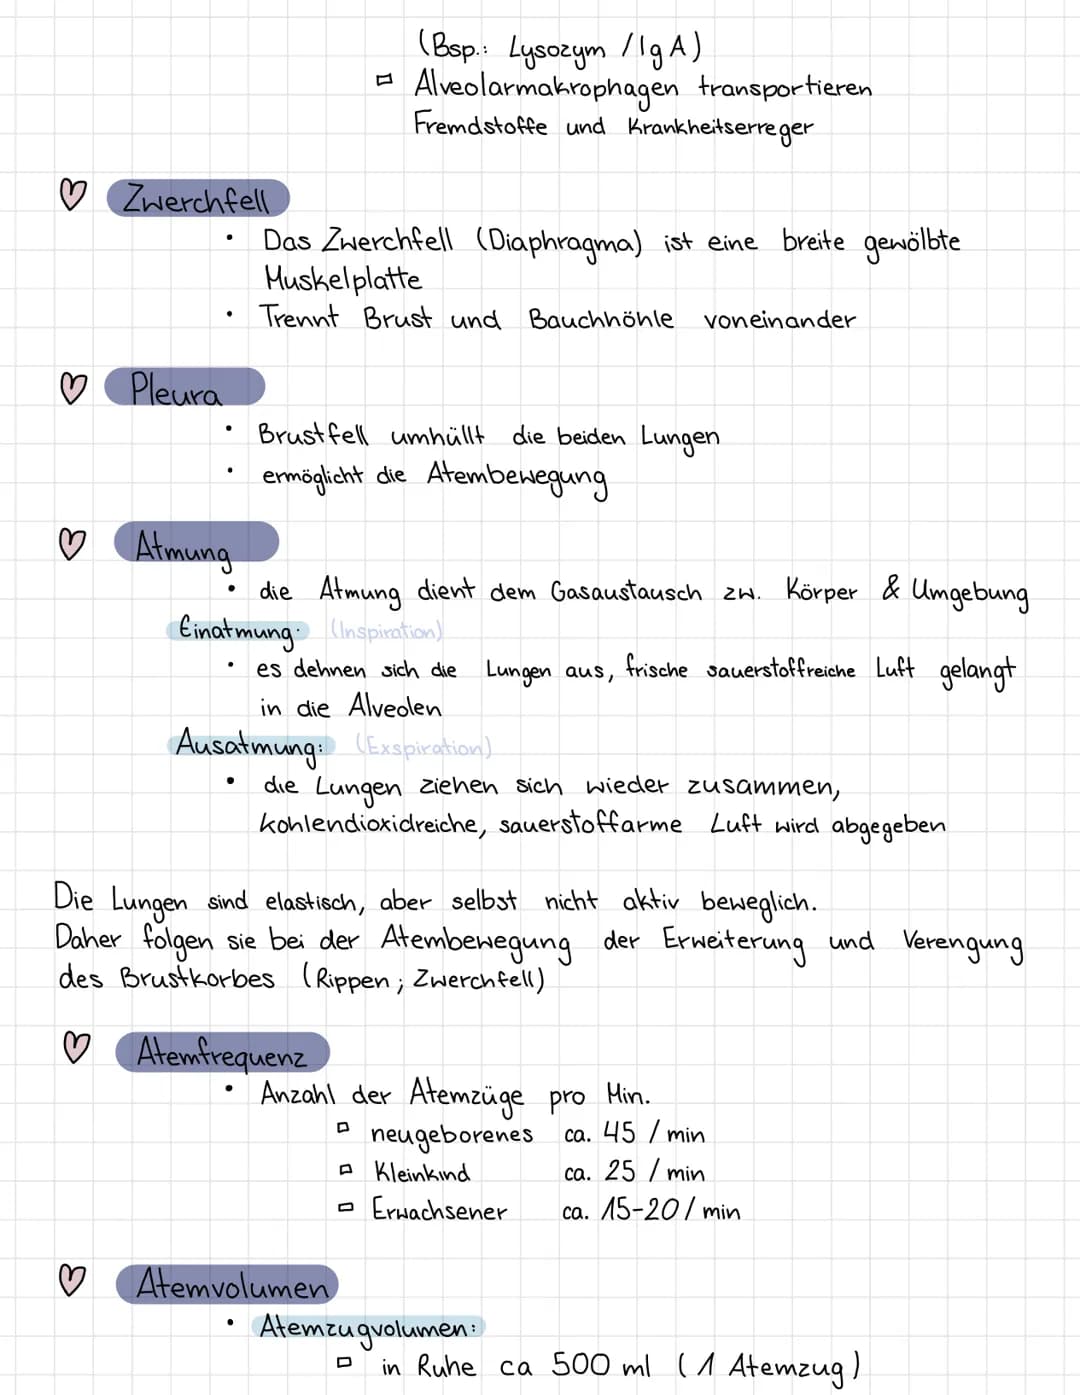 (Bsp.: Lysozym / IgA)
Alveolarmakrophagen transportieren
Fremdstoffe und Krankheitserreger
Zwerchfell
• Das Zwerchfell (Diaphragma) ist eine breite gewölbte
Muskelplatte
• Trennt Brust und Bauchhöhle voneinander
Pleura
• Brustfell umhüllt die beiden Lungen
• ermöglicht die Atembewegung
Atmung
• die Atmung dient dem Gasaustausch zw. Körper & Umgebung
Einatmung: (Inspiration)
• es dehnen sich die Lungen aus, frische sauerstoffreiche Luft gelangt
in die Alveolen
Ausatmung: (Exspiration)
• die Lungen ziehen sich wieder zusammen,
kohlendioxidreiche, sauerstoffarme Luft wird abgegeben
Die Lungen sind elastisch, aber selbst nicht aktiv beweglich.
Daher folgen sie bei der Atembewegung der Erweiterung und Verengung
des Brustkorbes (Rippen; Zwerchfell)
Atemfrequenz
• Anzahl der Atemzüge pro Min.
neugeborenes ca. 45 / min
Kleinkind ca. 25 / min
Erwachsener ca. 15-20 / min
Atemvolumen
• Atemzugvolumen:
in Ruhe ca 500 ml (1 Atemzug)